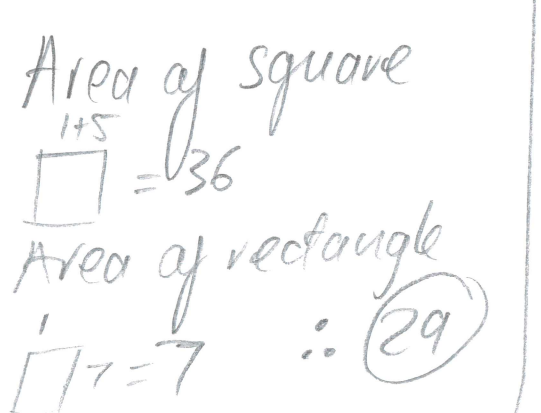 Area of square
1+5
= 36
Area of rectangle
1
7 = 7 ∴ 29